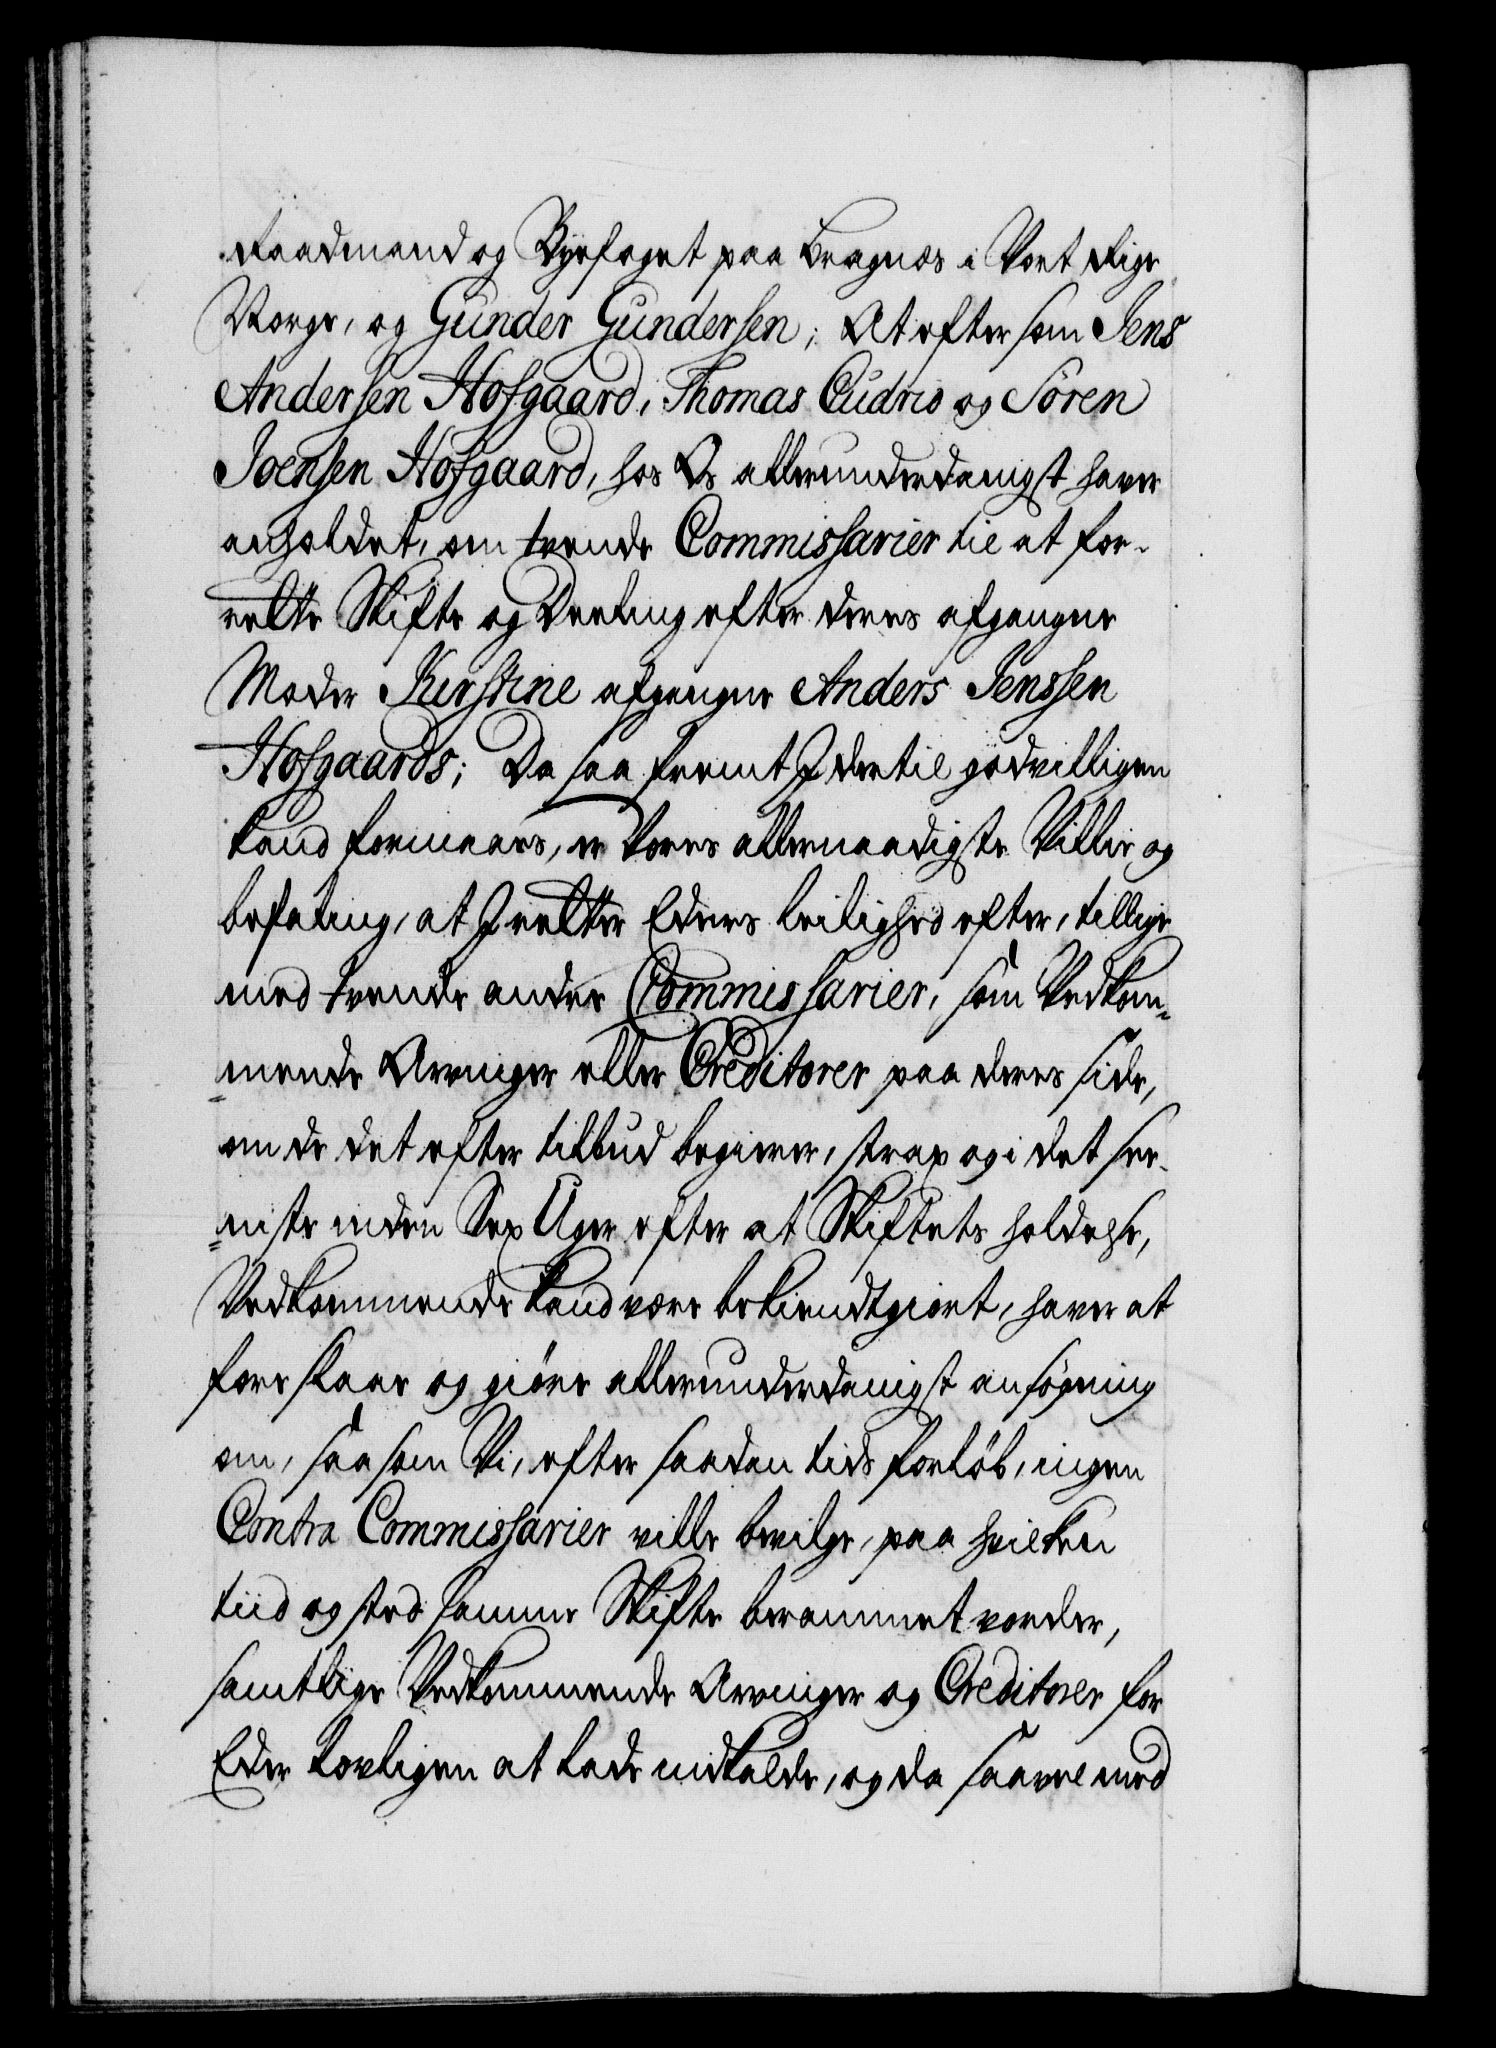 Raadmand og Byefoget paa Bragnæs i Vort Rige
Norge, og Gunder Gundersen; At eftersom Jens
Andersen Hofgaard, Thomas Cudrio og Sören
Joensen Hofgaard, hos Os allerunderdanigst haver
anholdet, om tvende Commissarier til at for-
rette Skifte og Deeling efter deres afgangne
Moder Kirstine afgangne Anders Jenssen
Hofgaards; Da saa fremt I dertil godvilligen
kand formaaes, er Vores allernaadigste Villie og
befaling, at I retter Eders leilighed efter, tillige
med tvende andre Commissarier, som Vedkom-
mende Arvinger eller Creditorer paa deres side,
om de det efter tilbud begierer, strax og i det see-
niste inden Sex Uger efter at Skiftets holdelse,
Vedkommende kand være bekiendtgiort, haver at
foreslaae og giøre allerunderdanigst ansøgning
om, saasom Vi, efter saadan tids forløb, ingen
Contra Commissarier ville bevilge, paa hvilken
tiid og sted samme Skifte berammet vorder,
samtlige Vedkommende Arvinger og Creditorer for
Eder lovligen at lade indkalde, og da saavel med